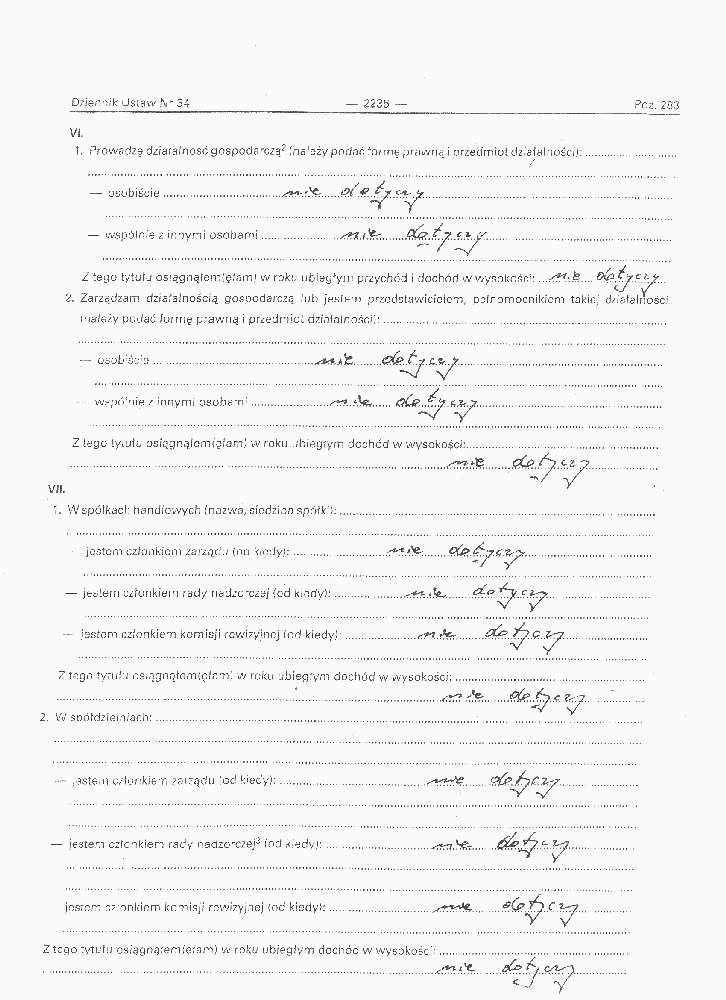 Dziennik Ustaw Nr 34 — 2236 — Poz. 283
VI.
1. Prowadzę działalność gospodarczą² (należy podać formę prawną i przedmiot działalności):
— osobiście nie dotyczy
— wspólnie z innymi osobami nie dotyczy
Z tego tytułu osiągnąłem(ęłam) w roku ubiegłym przychód i dochód w wysokości: nie dotyczy
2. Zarządzam działalnością gospodarczą lub jestem przedstawicielem, pełnomocnikiem takiej działalności
(należy podać formę prawną i przedmiot działalności):
— osobiście nie dotyczy
— wspólnie z innymi osobami nie dotyczy
Z tego tytułu osiągnąłem(ęłam) w roku ubiegłym dochód w wysokości:
nie dotyczy
VII.
1. W spółkach handlowych (nazwa, siedziba spółki):
— jestem członkiem zarządu (od kiedy): nie dotyczy
— jestem członkiem rady nadzorczej (od kiedy): nie dotyczy
— jestem członkiem komisji rewizyjnej (od kiedy): nie dotyczy
Z tego tytułu osiągnąłem(ęłam) w roku ubiegłym dochód w wysokości:
nie dotyczy
2. W spółdzielniach:
— jestem członkiem zarządu (od kiedy): nie dotyczy
— jestem członkiem rady nadzorczej³ (od kiedy): nie dotyczy
jestem członkiem komisji rewizyjnej (od kiedy): nie dotyczy
Z tego tytułu osiągnąłem(ęłam) w roku ubiegłym dochód w wysokości:
nie dotyczy